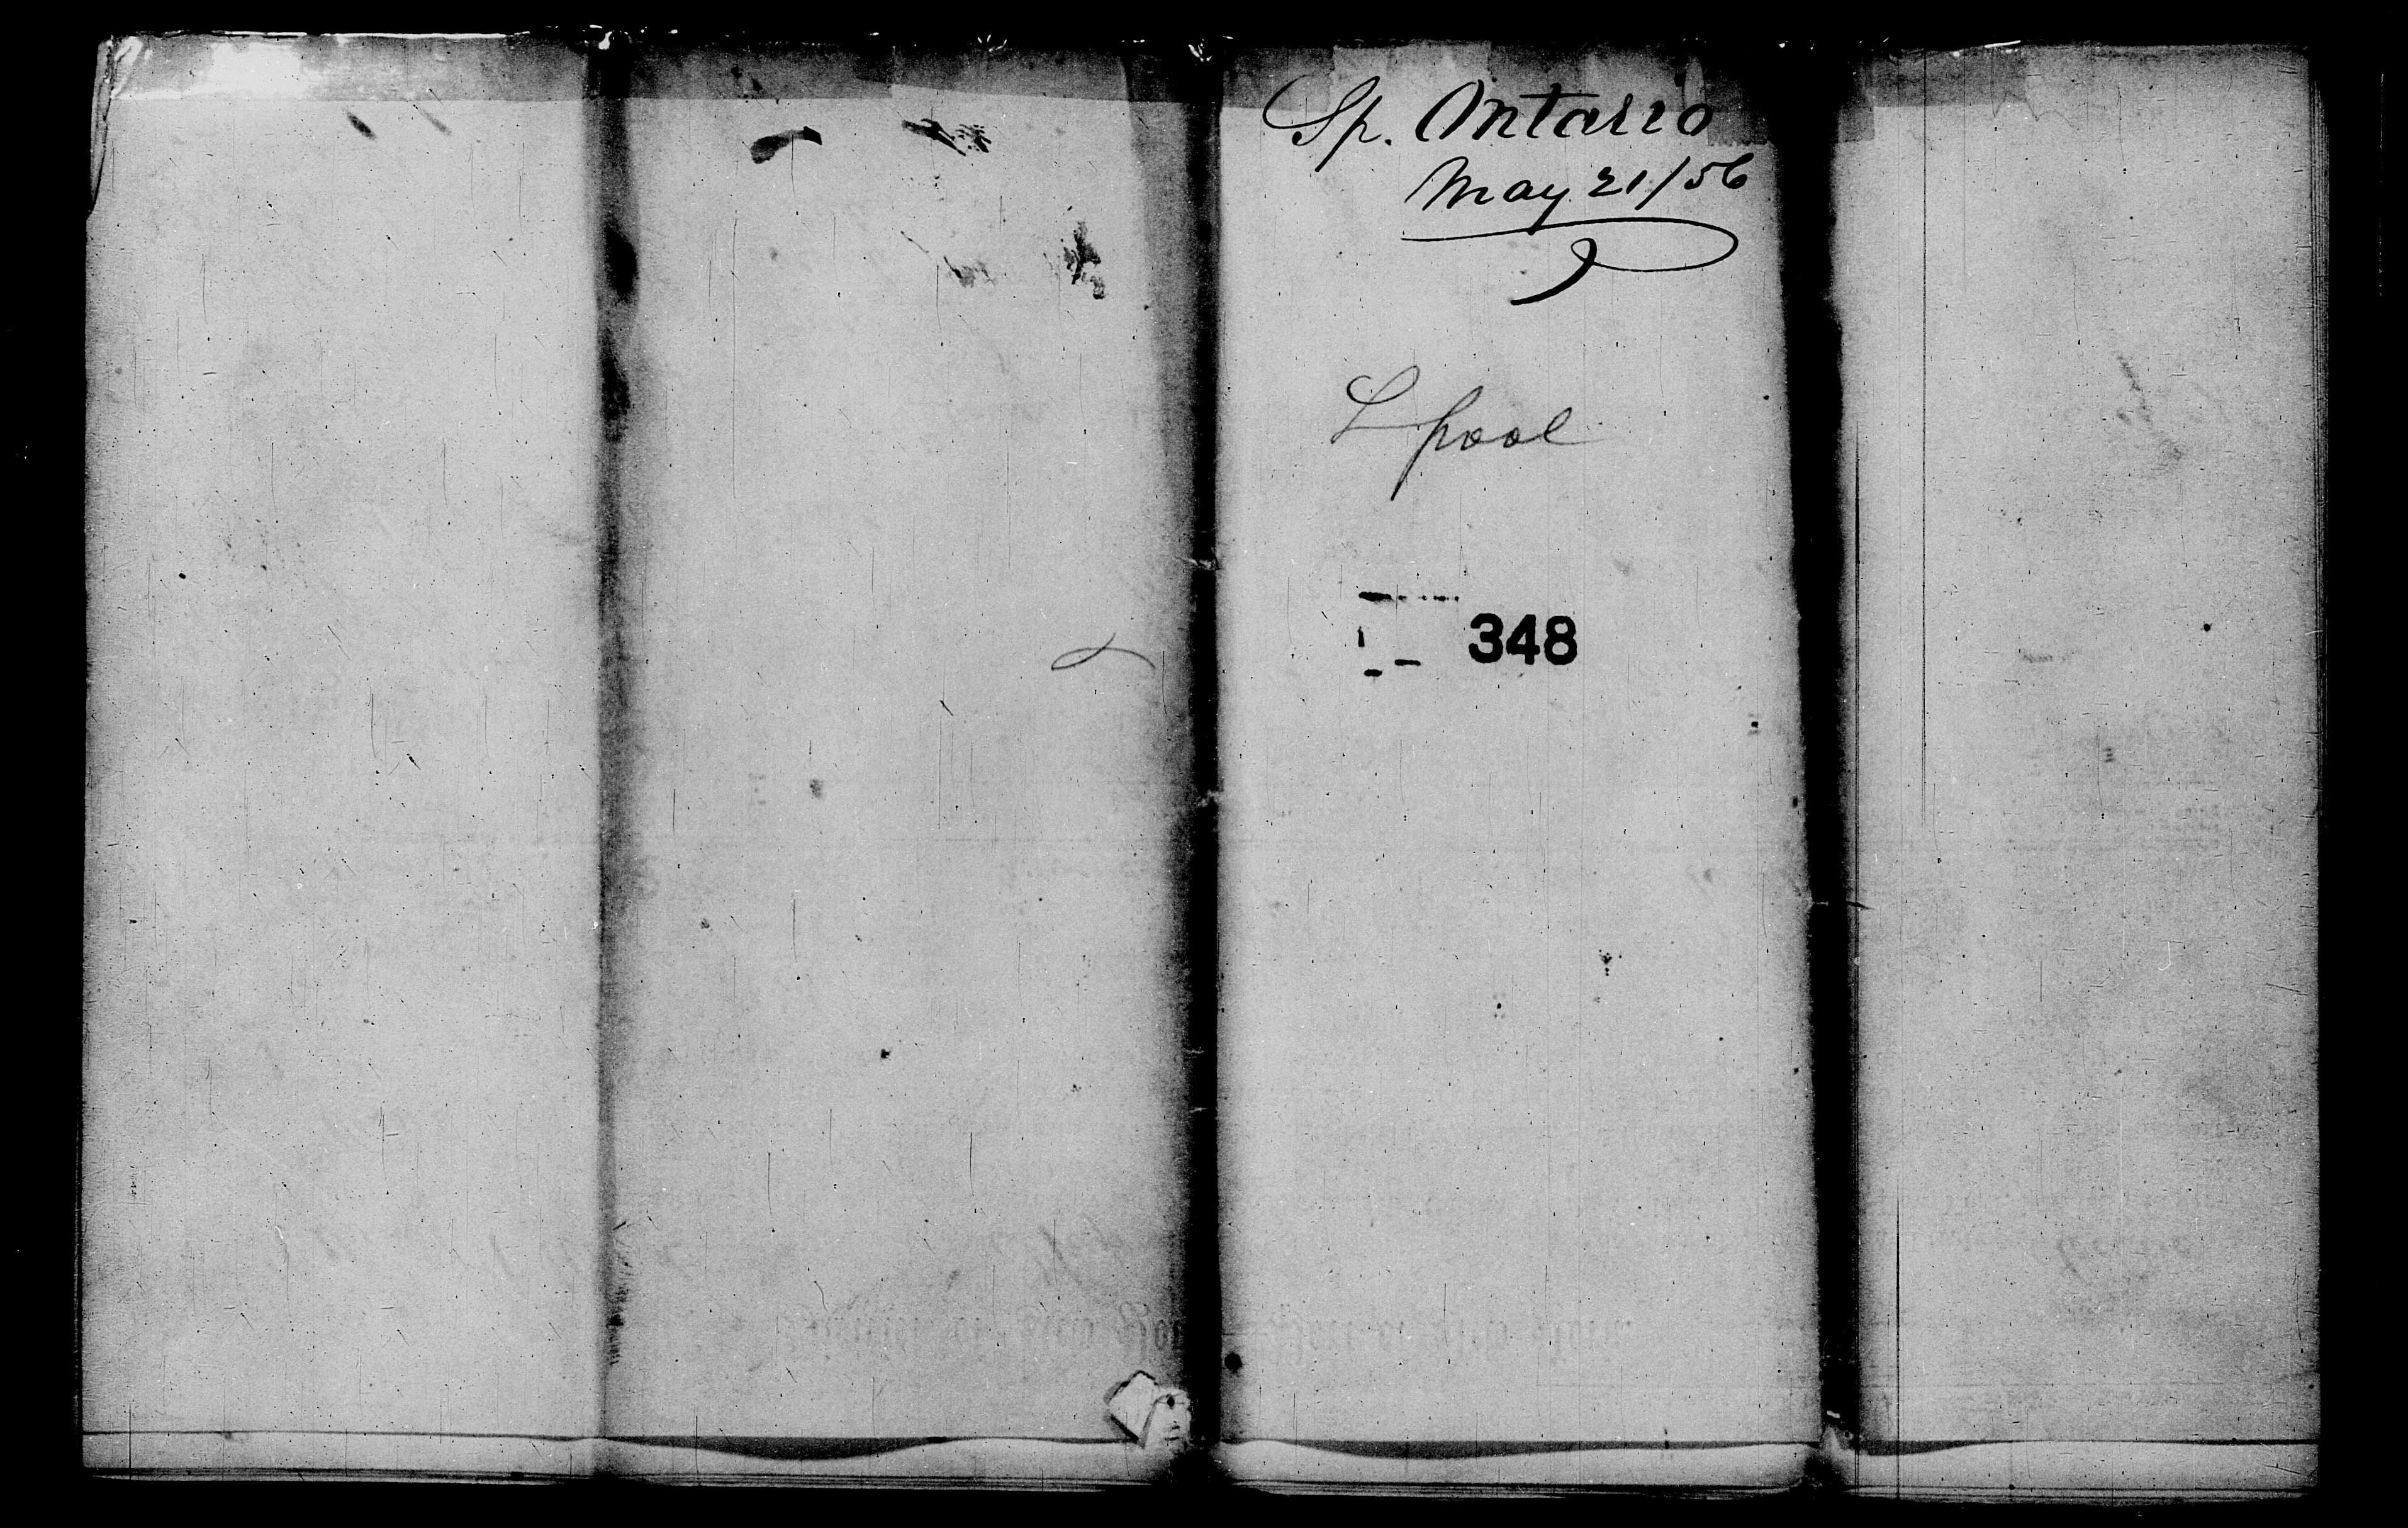 Sp. Ontario
May 21/56
L pool
348